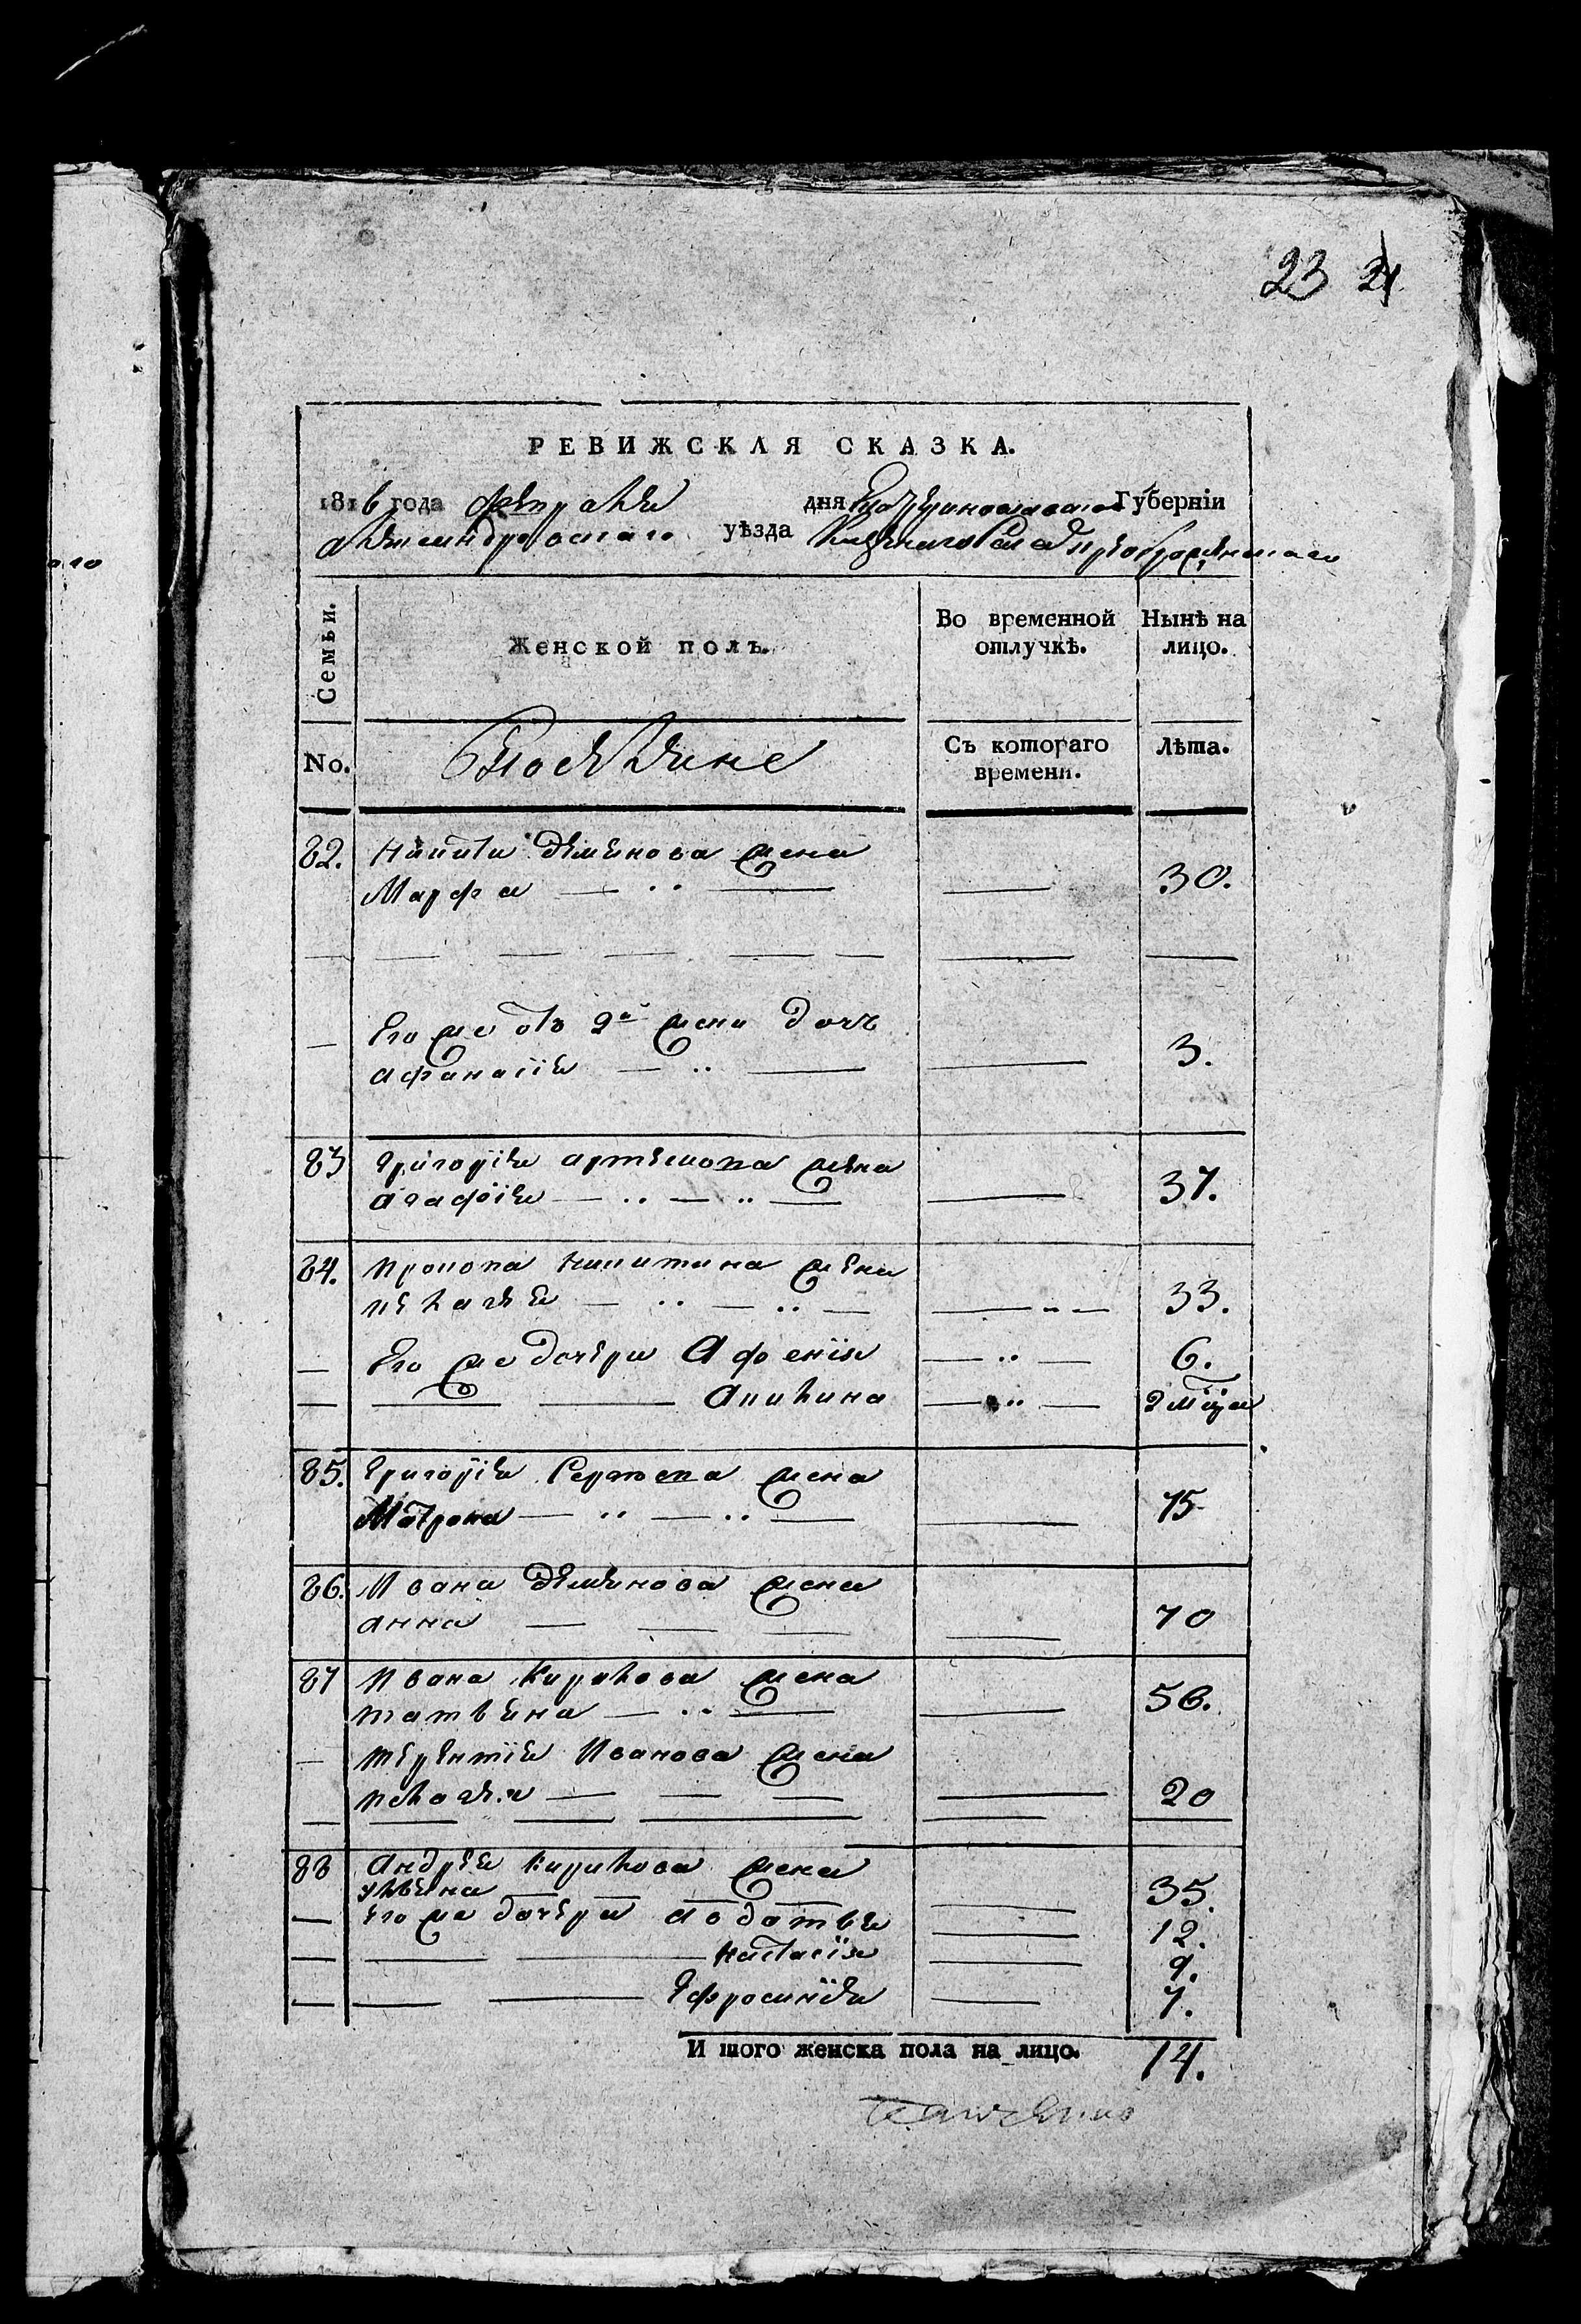 23 24
РЕВИЖСКАЯ СКАЗКА.
1816 года февраля дня Екатеринославской Губерніи
александровскаго уѣзда Казеннаго Села преображенскаго
Семьи.
Женской полъ.
Во временной отлучкѣ.
Нынѣ на лицо.
No.
Съ котораго времени.
Лѣта.
82. Никиты деменова жена
Марфа 30.
Его же отъ 2й жены дочь
афанасія 3.
83 григорія артемова жена
агафія 37.
84. прокопа никитина жена
пелагея 33.
Его же дочери Афенія 6.
акилина 2 мца
85. григорія Сергеева жена
Матрона 75
86. Ивана деменова жена
анна 70
87 Ивана Кирилова жена
татьяна 56.
терентія Иванова жена
пелагея 20
88 андрея кирилова жена
ульяна 35.
его же дочери авдотья 12.
настасія 9.
Ефросинія 7.
И того женска пола на лицо. 14.